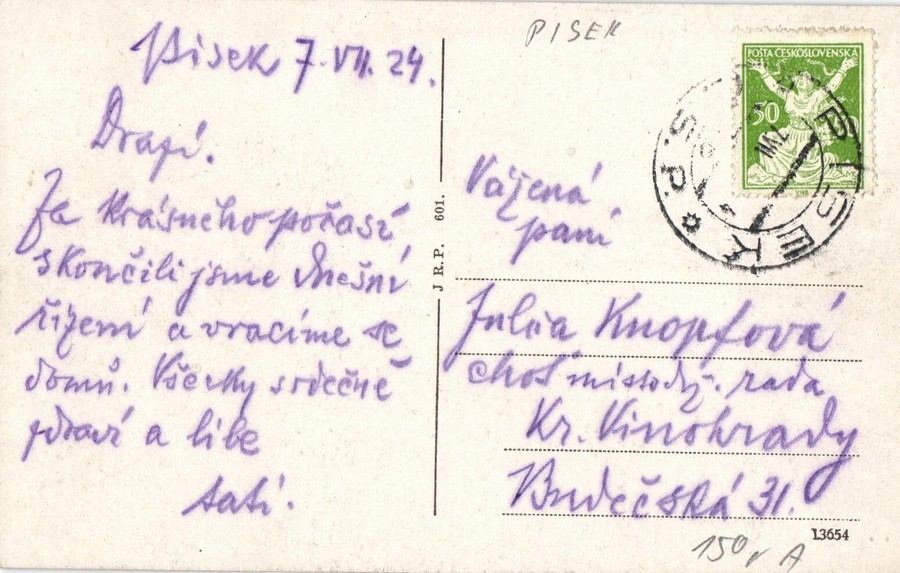 Písek 7.VII.24.
Drazí.
Za krásného počasí
skončili jsme dnešní
řízení a vracíme se
domů. Všecky srdečně
zdraví a líbe
tatí.
J R. P. 601.
PISEK
POŠTA ČESKOSLOVENSKÁ
50
PÍSEK
Vážená
paní
Julia Knopfová
choť místodrž. rada
Kr. Vinohrady
Budečská 31.
13654
150
A